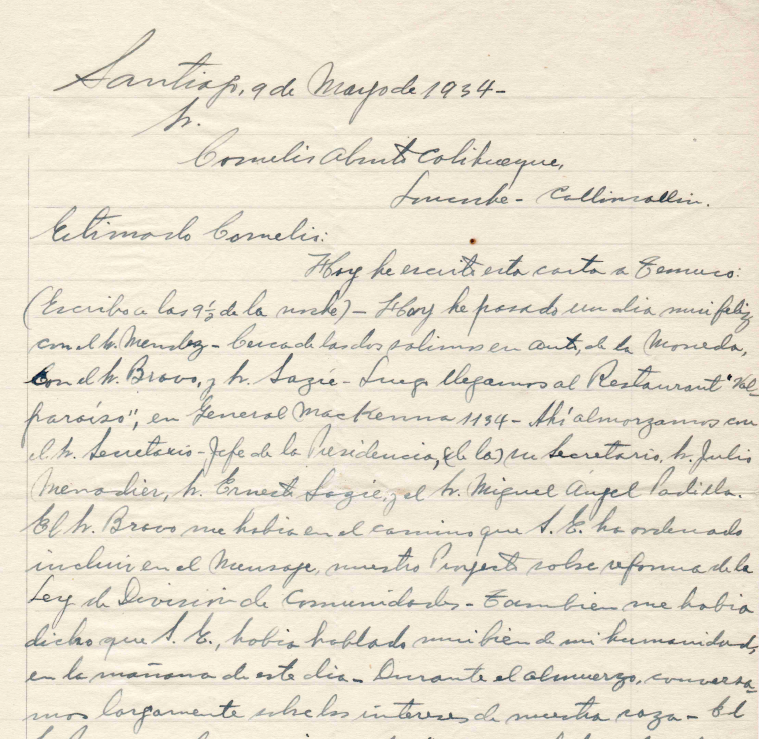 Santiago, 9 de Mayo de 1934-
Sr.
Cornelio Aburto Colihueque,
Loncoche - Collimallin.
Estimado Cornelio:
Hoy he escrito esta carta a Temuco:
(Escribo a las 9½ de la noche) - Hoy he pasado un dia mui feliz
con el Sr. Mendez - Cerca de las dos salimos en auto, de la Moneda,
con el Sr. Bravo, y Sr. Lazié - Luego llegamos al Restaurant "Val-
paraíso", en General MacKenna 1134 - Ahí almorzamos con
el Sr. Secretario-Jefe de la Presidencia, (de la) su Secretario, Sr. Julio
Menadier, Sr. Ernesto Lazié, y el Sr. Miguel Ángel Padilla.
El Sr. Bravo me habia en el camino que S. E. ha ordenado
incluir en el Mensaje, nuestro Proyecto sobre reforma de la
Ley de División de Comunidades - Tambien me habia
dicho que S. E., habia hablado mui bien de mi humanidad,
en la mañana de este dia - Durante el almuerzo, conversa-
mos largamente sobre los intereses de nuestra raza - El